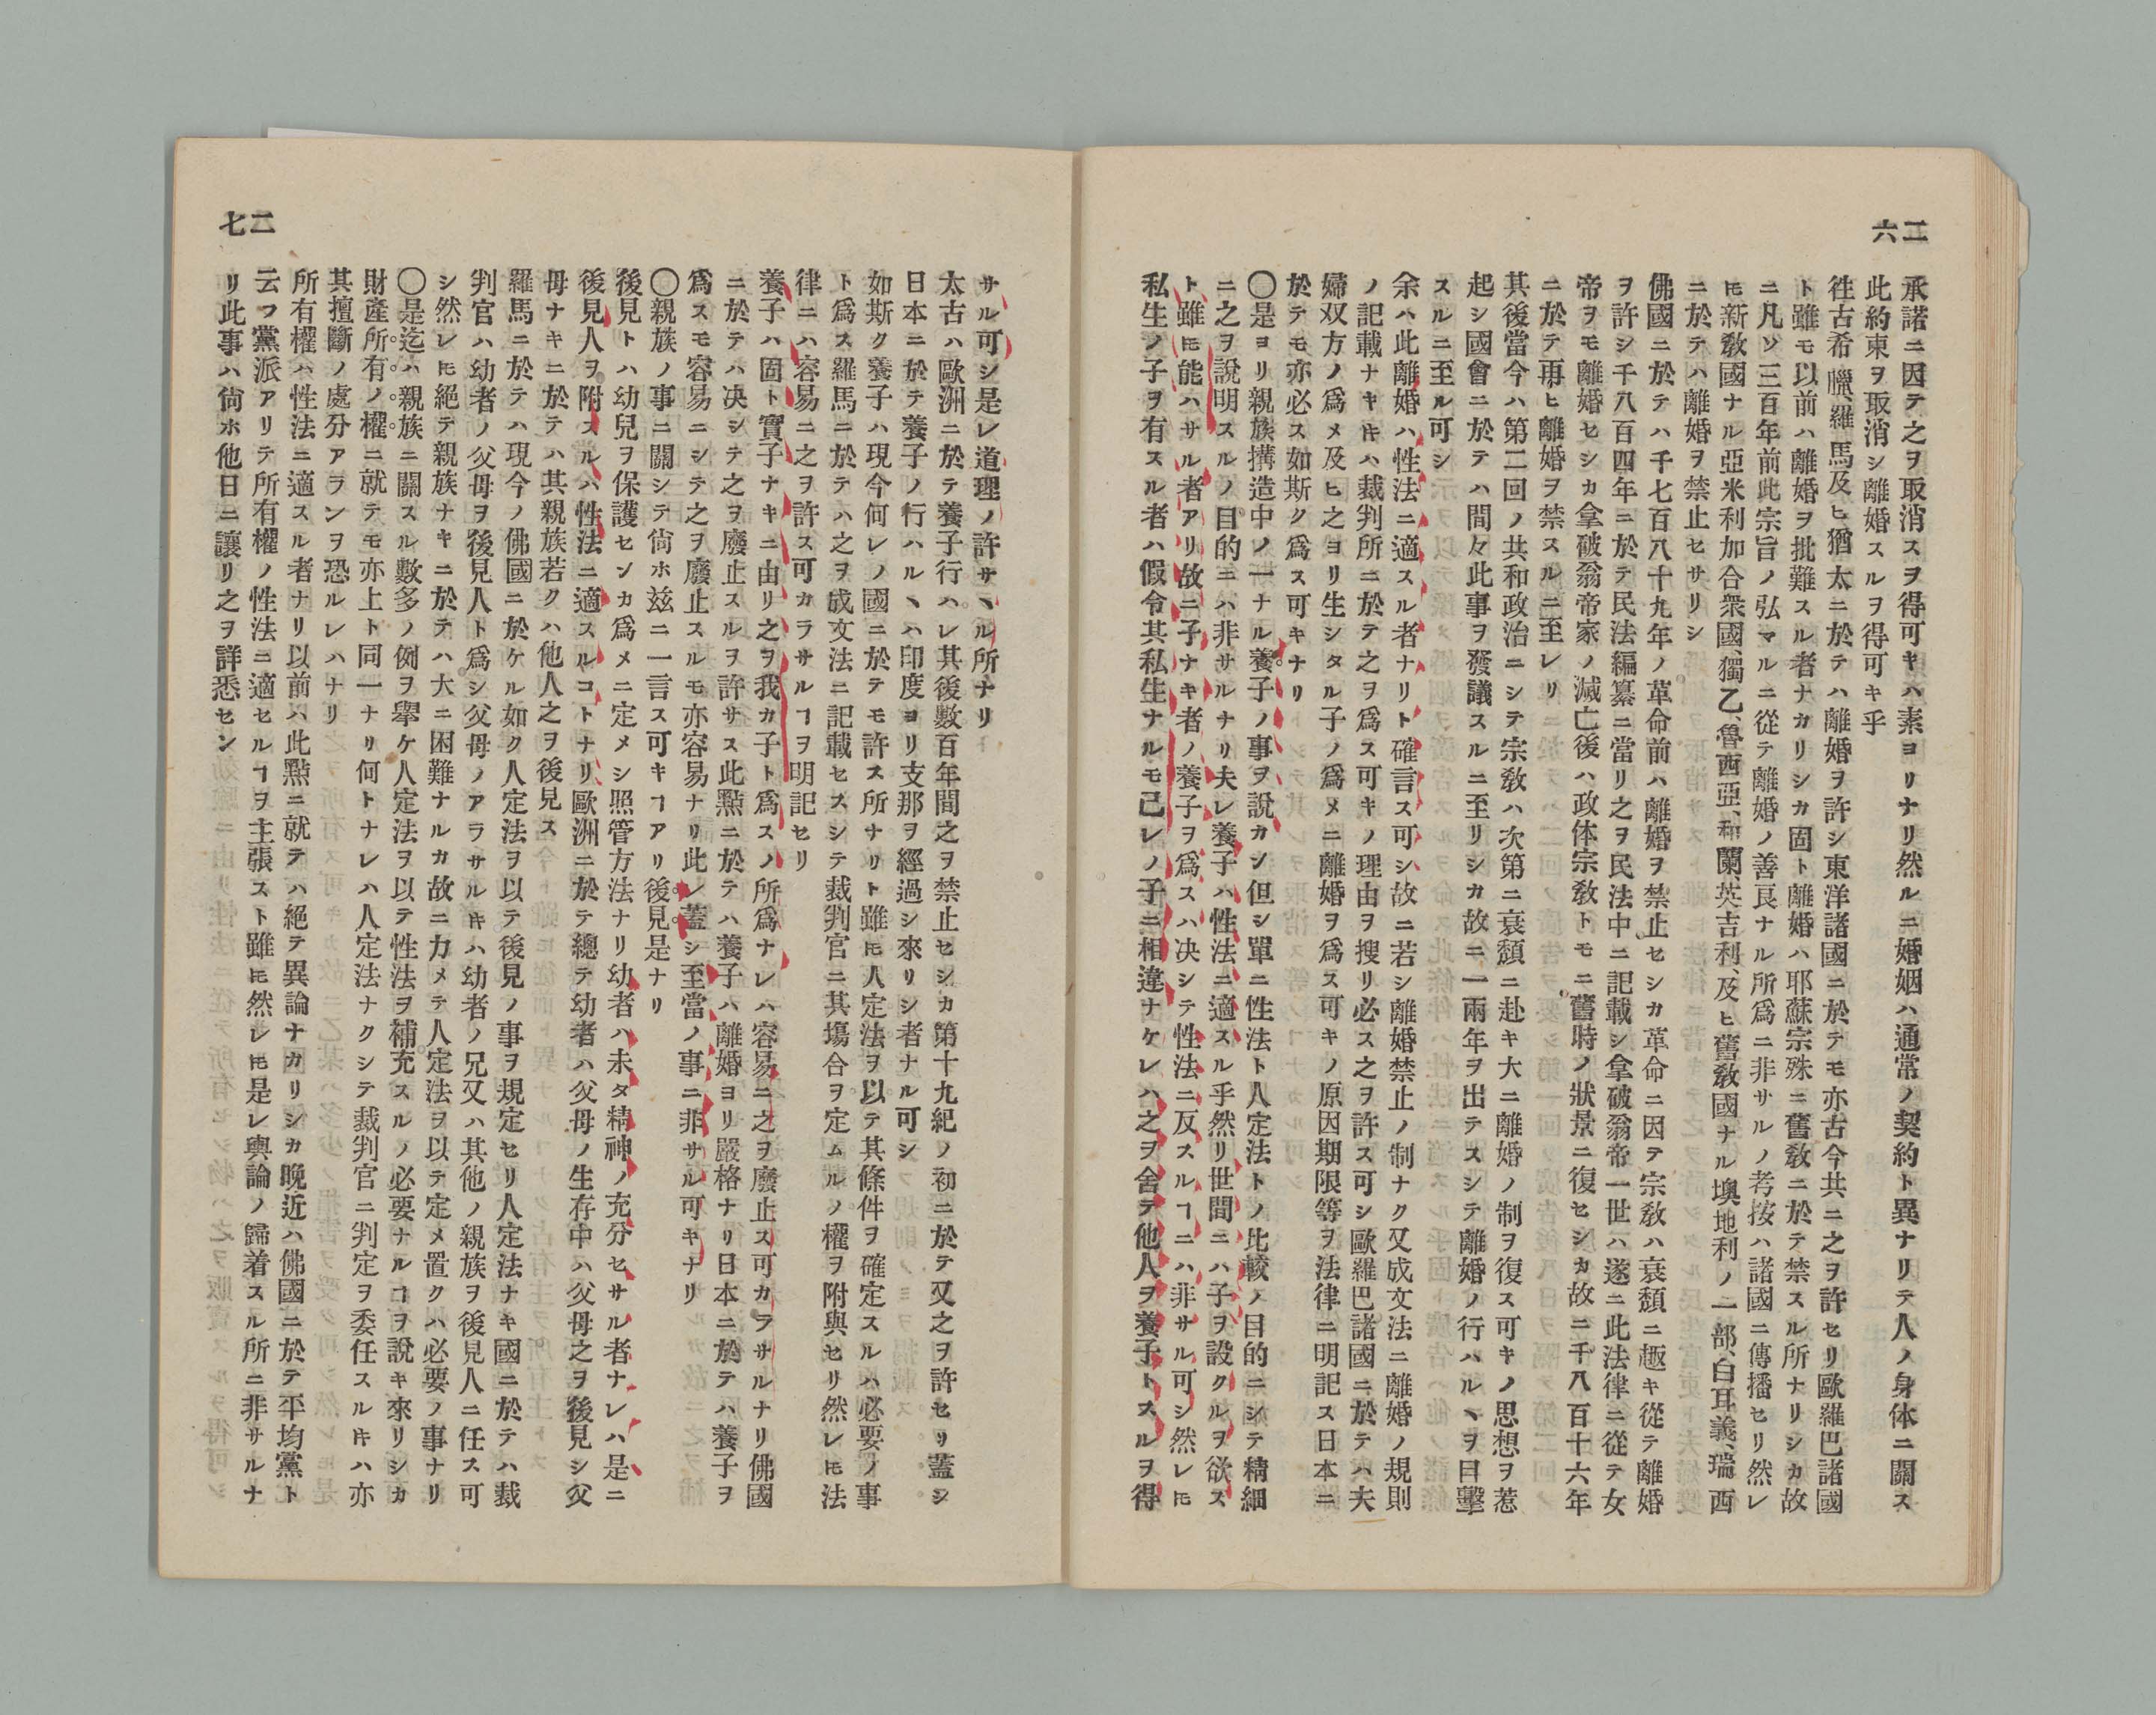 二六
承諾ニ因テ之ヲ取消スヲ得可キハ素ヨリナリ然ルニ婚姻ハ通常ノ契約ト異ナリテ人ノ身体ニ關ス
此約東ヲ取消シ離婚スルヲ得可キ乎
徃古希臘、羅馬及ヒ猶太ニ於テハ離婚ヲ許シ東洋諸國ニ於テモ亦古今共ニ之ヲ許セリ歐羅巴諸國
ト雖モ以前ハ離婚ヲ批難スル者ナカリシカ固ト離婚ハ耶蘇宗殊ニ舊敎ニ於テ禁スル所ナリシカ故
ニ凡ソ三百年前此宗旨ノ弘マルニ從テ離婚ノ善良ナル所爲ニ非サルノ考按ハ諸國ニ傳播セリ然レ
𪜈新敎國ナル亞米利加合衆國、獨乙、魯西亞、和蘭、英吉利、及ヒ舊敎國ナル墺地利ノ一部、白耳義、瑞西
ニ於テハ離婚ヲ禁止セサリシ
佛國ニ於テハ千七百八十九年ノ革命前ハ離婚ヲ禁止セシカ革命ニ因テ宗敎ハ衰頽ニ趣キ從テ離婚
ヲ許シ千八百四年ニ於テ民法編纂ニ當リ之ヲ民法中ニ記載シ拿破翁帝一世ハ遂ニ此法律ニ從テ女
帝ヲモ離婚セシカ拿破翁帝家ノ滅亡後ハ政体宗敎トモニ舊時ノ狀景ニ復セシカ故ニ千八百十六年
ニ於テ再ヒ離婚ヲ禁スルニ至レリ
其後當今ハ第二回ノ共和政治ニシテ宗敎ハ次第ニ衰頽ニ赴キ大ニ離婚ノ制ヲ復ス可キノ思想ヲ惹
起シ國會ニ於テハ間々此事ヲ發議スルニ至リシカ故ニ一兩年ヲ出テスシテ離婚ノ行ハルヽヲ目擊
スルニ至ル可シ
余ハ此離婚ハ性法ニ適スル者ナリト確言ス可シ故ニ若シ離婚禁止ノ制ナク又成文法ニ離婚ノ規則
ノ記載ナキ𪜈ハ裁判所ニ於テ之ヲ爲ス可キノ理由ヲ搜リ必ス之ヲ許ス可シ歐羅巴諸國ニ於テハ夫
婦双方ノ爲メ及ヒ之ヨリ生シタル子ノ爲メニ離婚ヲ爲ス可キノ原因期限等ヲ法律ニ明記ス日本ニ
於テモ亦必ス如斯ク爲ス可キナリ
〇是ヨリ親族搆造中ノ一ナル養子ノ事ヲ說カン但シ單ニ性法ト人定法トノ比較ノ目的ニシテ精細
ニ之ヲ說明スルノ目的ニハ非サルナリ夫レ養子ハ性法ニ適スル乎然リ世間ニハ子ヲ設クルヲ欲ス
ト雖𪜈能ハサル者アリ故ニ子ナキ者ノ養子ヲ爲スハ决シテ性法ニ反スルヿニハ非サル可シ然レ𪜈
私生ノ子ヲ有スル者ハ假令其私生ナルモ己レノ子ニ相違ナケレハ之ヲ舍テ他人ヲ養子トスルヲ得
二七
サル可シ是レ道理ノ許サヽル所ナリ
太古ハ歐洲ニ於テ養子行ハレ其後數百年間之ヲ禁止セシカ第十九紀ノ初ニ於テ又之ヲ許セリ蓋シ
日本ニ於テ養子ノ行ハルヽハ印度ヨリ支那ヲ經過シ來リシ者ナル可シ
如斯ク養子ハ現今何レノ國ニ於テモ許ス所ナリト雖𪜈人定法ヲ以テ其條件ヲ確定スルハ必要ノ事
ト爲ス羅馬ニ於テハ之ヲ成文法ニ記載セスシテ裁判官ニ其塲合ヲ定ムルノ權ヲ附與セリ然レ𪜈法
律ニハ容易ニ之ヲ許ス可カラサルヿヲ明記セリ
養子ハ固ト實子ナキニ由リ之ヲ我カ子ト爲スノ所爲ナレハ容易ニ之ヲ廢止ス可カラサルナリ佛國
ニ於テハ决シテ之ヲ廢止スルヲ許サス此點ニ於テハ養子ハ離婚ヨリ嚴格ナリ日本ニ於テハ養子ヲ
爲スモ容易ニシテ之ヲ廢止スルモ亦容易ナリ此レ蓋シ至當ノ事ニ非サル可キナリ
〇親族ノ事ニ關シテ尙ホ茲ニ一言ス可キヿアリ後見是ナリ
後見トハ幼兒ヲ保護センカ爲メニ定メシ照管方法ナリ幼者ハ未タ精神ノ充分セサル者ナレハ是ニ
後見人ヲ附スルハ性法ニ適スルコトナリ歐洲ニ於テ總テ幼者ハ父母ノ生存中ハ父母之ヲ後見シ父
母ナキニ於テハ其親族若クハ他人之ヲ後見ス
羅馬ニ於テハ現今ノ佛國ニ於ケル如ク人定法ヲ以テ後見ノ事ヲ規定セリ人定法ナキ國ニ於テハ裁
判官ハ幼者ノ父母ヲ後見人ト爲シ父母ノアラサル𪜈ハ幼者ノ兄又ハ其他ノ親族ヲ後見人ニ任ス可
シ然レ𪜈絕テ親族ナキニ於テハ大ニ困難ナルカ故ニ力メテ人定法ヲ以テ定メ置クハ必要ノ事ナリ
〇是迄ハ親族ニ關スル數多ノ例ヲ舉ケ人定法ヲ以テ性法ヲ補充スルノ必要ナルヿヲ說キ來リシカ
財產所有ノ權ニ就テモ亦上ト同一ナリ何トナレハ人定法ナクシテ裁判官ニ判定ヲ委任スル𪜈ハ亦
其擅斷ノ處分アランヲ恐ルレハナリ
所有權ハ性法ニ適スル者ナリ以前ハ此點ニ就テハ絕テ異論ナカリシカ晩近ハ佛國ニ於テ平均黨ト
云フ黨派アリテ所有權ノ性法ニ適セルヿヲ主張スト雖𪜈然レ𪜈是レ輿論ノ歸着スル所ニ非サルナ
リ此事ハ尙ホ他日ニ讓リ之ヲ詳悉セン